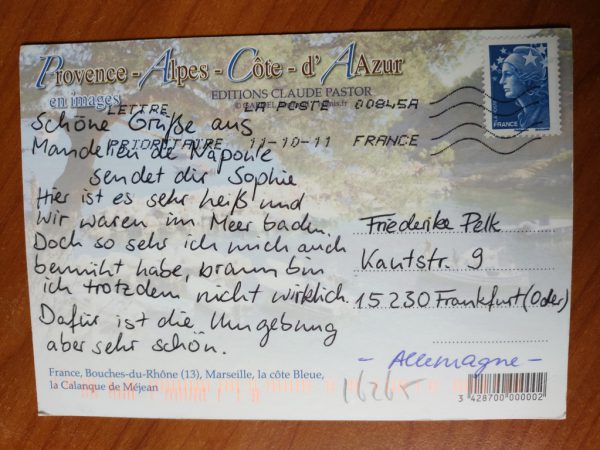 Provence - Alpes - Côte - d'AAzur
en images
EDITIONS CLAUDE PASTOR
LETTRE LA POSTE 00845A
PRIORITAIRE 11-10-11 FRANCE
FRANCE
Schöne Grüße aus
Mandelieu de Napoule
sendet dir Sophie
Hier ist es sehr heiß und
wir waren im Meer baden.
Doch so sehr ich mich auch
bemüht habe, braun bin
ich trotzdem nicht wirklich.
Dafür ist die Umgebung
aber sehr schön.
Friederike Pelk
Kantstr. 9
15230 Frankfurt (Oder)
- Allemagne -
France, Bouches-du-Rhône (13), Marseille, la côte Bleue,
la Calanque de Méjean
16265
3 428700 000002